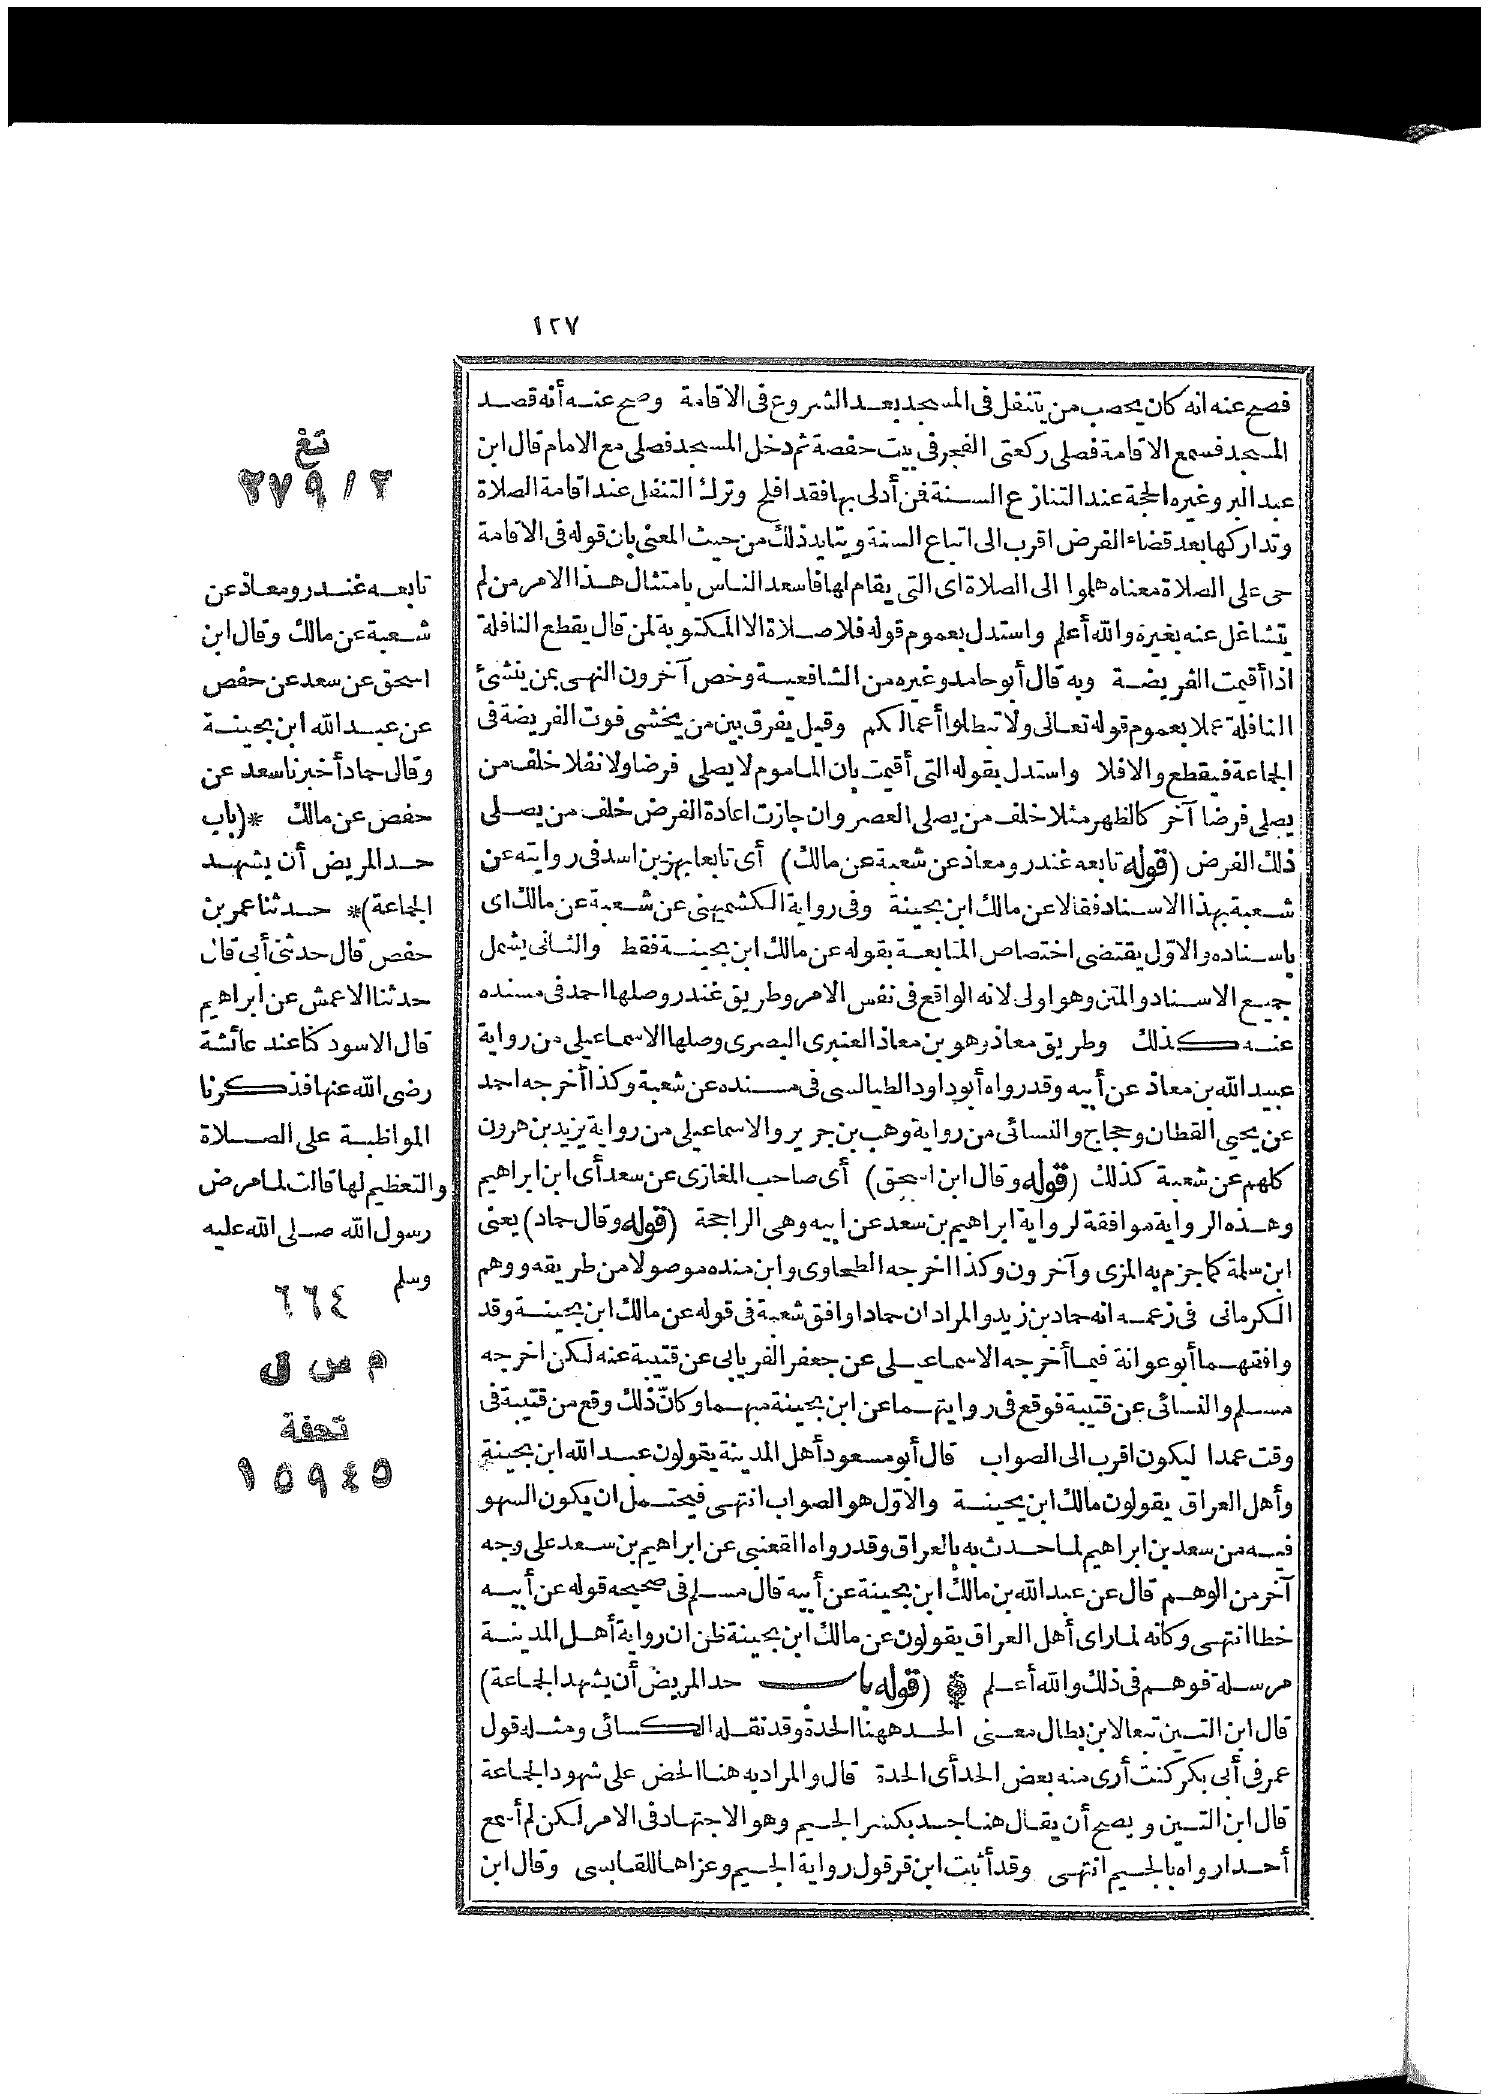 ١٢٧
فصح عنه انه كان يحصب من يتنفل فى المسجد بعد الشروع فى الاقامة وصح عنه أنه قصد
المسجد فسمع الاقامة فصلى ركعتى الفجر فى بيت حفصة ثم دخل المسجد فصلى مع الامام قال ابن
عبد البر وغيره الحجة عند التنازع السنة فمن أدلى بها فقد افلح وترك التنفل عند اقامة الصلاة
وتداركها بعد قضاء الفرض اقرب الى اتباع السنة ويتايد ذلك من حيث المعنى بان قوله فى الاقامة
حى على الصلاة معناه هلموا الى الصلاة اى التى يقام لها فاسعد الناس بامتثال هذا الامر من لم
يتشاغل عنه بغيره والله أعلم واستدل بعموم قوله فلا صلاة الا المكتوبة لمن قال يقطع النافلة
اذا أقيمت الفريضة وبه قال أبو حامد وغيره من الشافعية وخص آخرون النهى بمن ينشئ
النافلة عملا بعموم قوله تعالى ولا تبطلوا أعمالكم وقيل يفرق بين من يخشى فوت الفريضة فى
الجماعة فيقطع والا فلا واستدل بقوله التى أقيمت بان الماموم لا يصلى فرضا ولا نفلا خلف من
يصلى فرضا آخر كالظهر مثلا خلف من يصلى العصر وان جازت اعادة الفرض خلف من يصلى
ذلك الفرض (قوله تابعه غندر ومعاذ عن شعبة عن مالك) أى تابعا بهز بن اسد فى روايته عن
شعبة بهذا الاسناد فقالا عن مالك ابن بحينة وفى رواية الكشميهنى عن شعبة عن مالك اى
باسناده والاول يقتضى اختصاص المتابعة بقوله عن مالك ابن بحينة فقط والثانى يشمل
جميع الاسناد والمتن وهو اولى لانه الواقع فى نفس الامر وطريق غندر وصلها احمد فى مسنده
عنه كذلك وطريق معاذ وهو بن معاذ العنبرى البصرى وصلها الاسماعيلى من رواية
عبيد الله بن معاذ عن أبيه وقد رواه أبو داود الطيالسى فى مسنده عن شعبة وكذا أخرجه احمد
عن يحيى القطان وحجاج والنسائى من رواية وهب بن جرير والاسماعيلى من رواية يزيد بن هرون
كلهم عن شعبة كذلك (قوله وقال ابن اسحق) أى صاحب المغازى عن سعد أى ابن ابراهيم
وهذه الرواية موافقة لرواية ابراهيم بن سعد عن ابيه وهى الراجحة (قوله وقال حماد) يعنى
ابن سلمة كما جزم به المزى وآخرون وكذا اخرجه الطحاوى وابن منده موصولا من طريقه ووهم
الكرمانى فى زعمه انه حماد بن زيد والمراد ان حمادا وافق شعبة فى قوله عن مالك ابن بحينة وقد
وافقهما أبو عوانة فيما أخرجه الاسماعيلى عن جعفر الفريابى عن قتيبة عنه لكن اخرجه
مسلم والنسائى عن قتيبة فوقع فى روايتهما عن ابن بحينة مبهما وكأن ذلك وقع من قتيبة فى
وقت عمدا ليكون اقرب الى الصواب قال أبو مسعود أهل المدينة يقولون عبد الله ابن بحينة
وأهل العراق يقولون مالك ابن بحينة والاول هو الصواب انتهى فيحتمل ان يكون السهو
فيه من سعد بن ابراهيم لما حدث به بالعراق وقد رواه القعنبى عن ابراهيم بن سعد على وجه
آخر من الوهم قال عن عبد الله بن مالك ابن بحينة عن أبيه قال مسلم فى صحيحه قوله عن أبيه
خطا انتهى وكأنه لما راى أهل العراق يقولون عن مالك ابن بحينة ظن ان رواية أهل المدينة
مرسلة فوهم فى ذلك والله أعلم (قوله باب حد المريض أن يشهد الجماعة)
قال ابن التين تبعا لابن بطال معنى الحد ههنا الحدة وقد نقله الكسائى ومثله قول
عمر فى أبى بكر كنت أرى منه بعض الحد أى الحدة قال والمراد به هنا الحض على شهود الجماعة
قال ابن التين ويصح أن يقال هنا جد بكسر الجيم وهو الاجتهاد فى الامر لكن لم أسمع
أحدا رواه بالجيم انتهى وقد أثبت ابن قرقول رواية الجيم وعزاها للقابسى وقال ابن
تغ
٢/٢٧٩
تابعه غندر ومعاذ عن
شعبة عن مالك وقال ابن
اسحق عن سعد عن حفص
عن عبد الله ابن بحينة
وقال حماد أخبرنا سعد عن
حفص عن مالك *(باب
حد المريض أن يشهد
الجماعة)* حدثنا عمر بن
حفص قال حدثنى أبى قال
حدثنا الاعمش عن ابراهيم
قال الاسود كنا عند عائشة
رضى الله عنها فذكرنا
المواظبة على الصلاة
والتعظيم لها قالت لما مرض
رسول الله صلى الله عليه
وسلم
٦٦٤
م س ق
تحفة
١٥٩٤٥